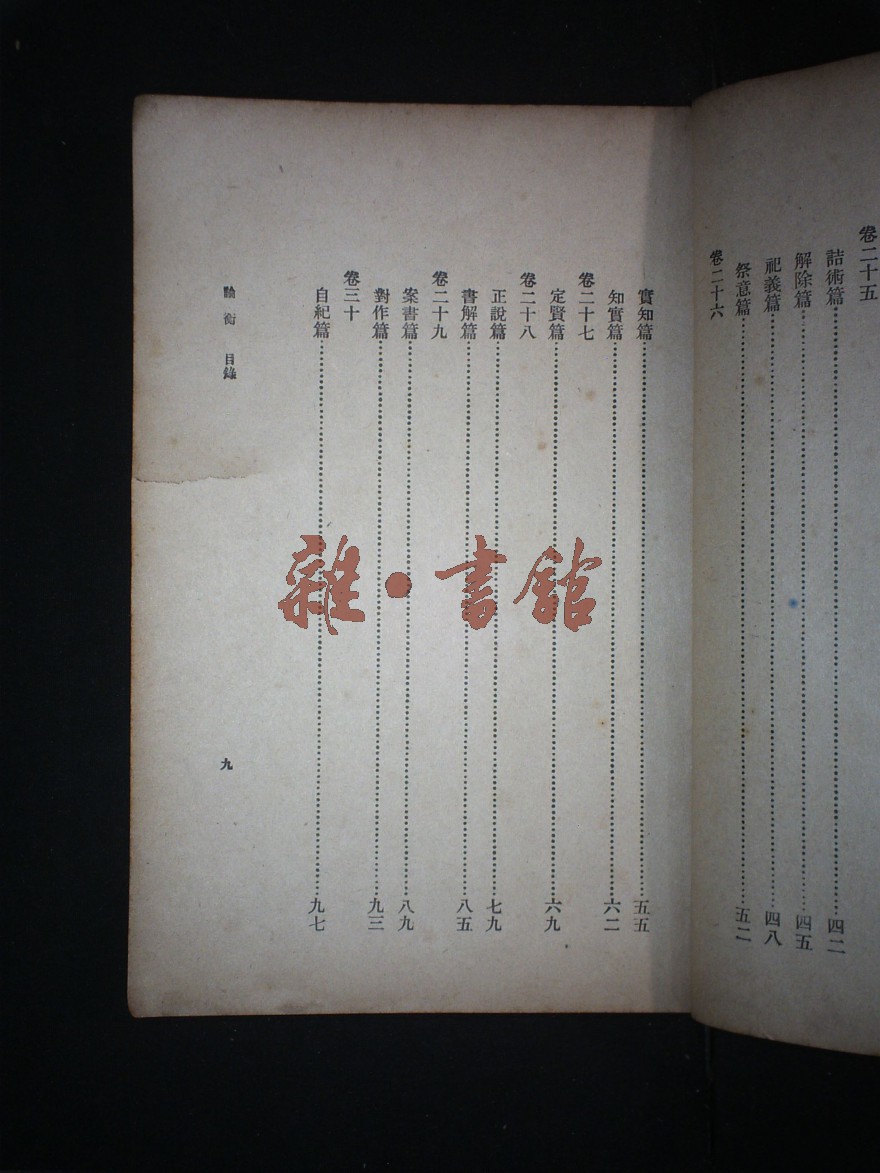 卷二十五
詰術篇 四二
解除篇 四五
祀義篇 四八
祭意篇 五二
卷二十六
實知篇 五五
知實篇 六二
卷二十七
定賢篇 六九
卷二十八
正說篇 七九
書解篇 八五
卷二十九
案書篇 八九
對作篇 九三
卷三十
自紀篇 九七
論衡 目錄
九
雜·書館